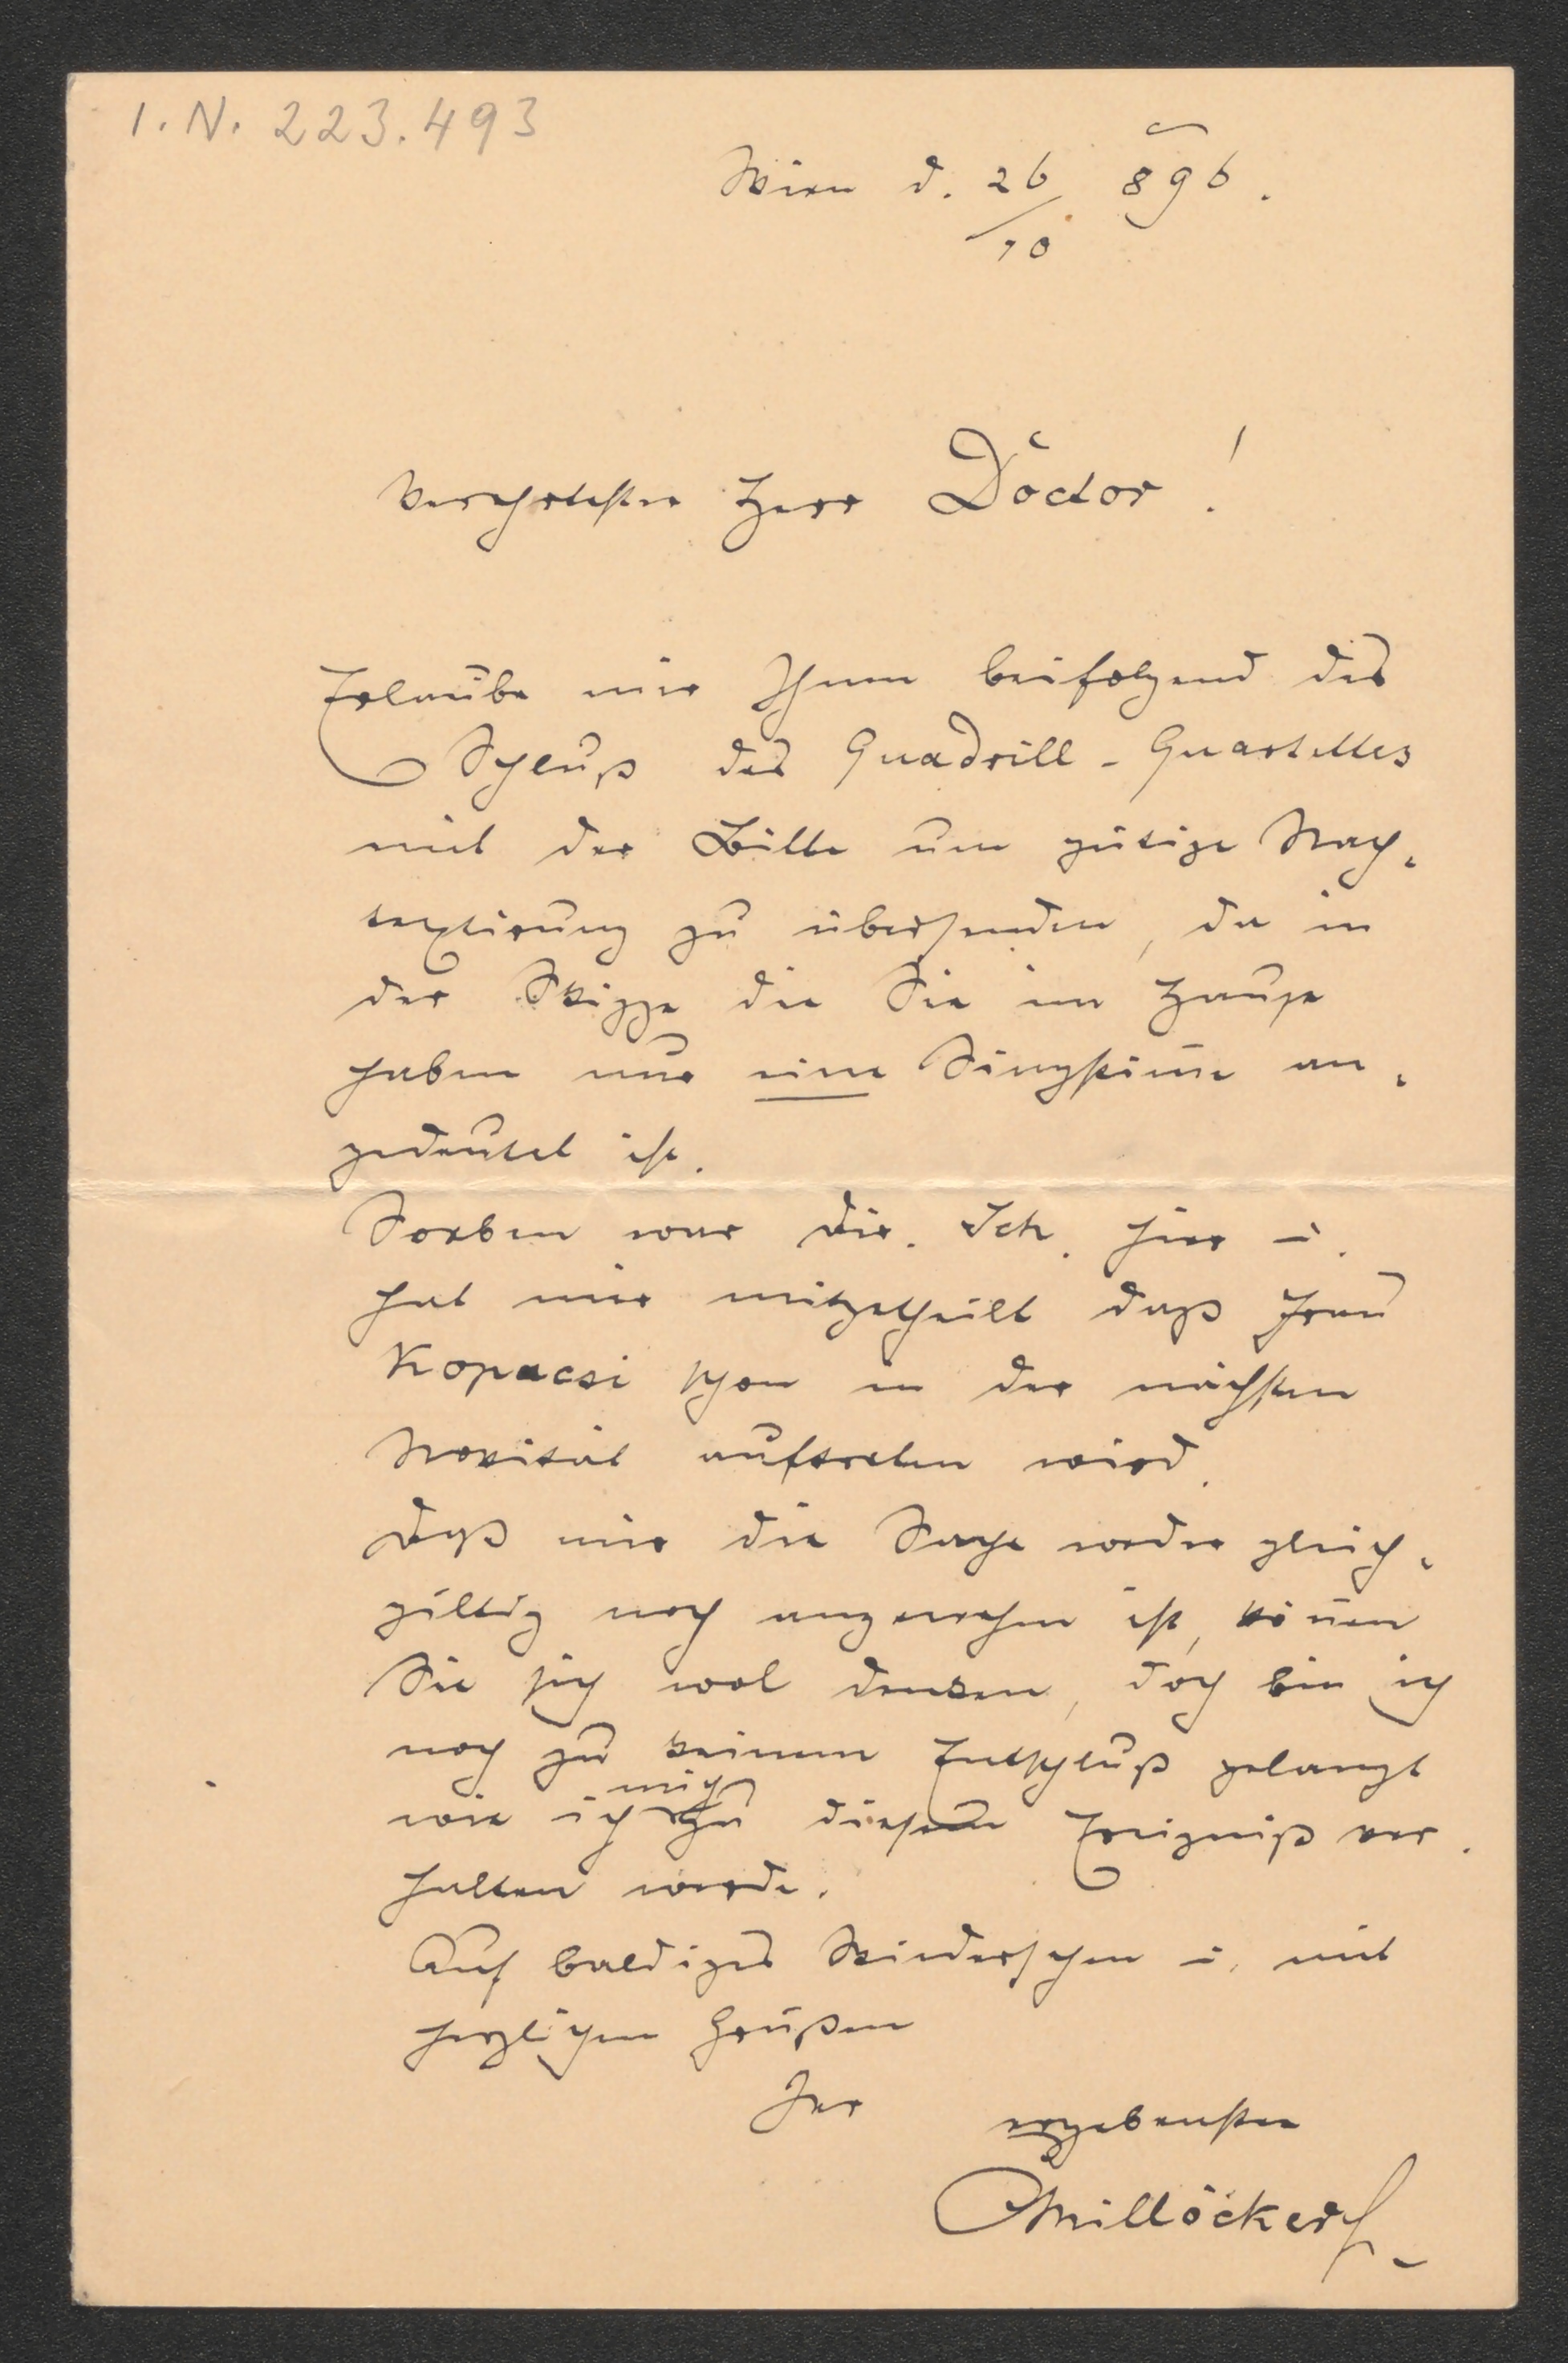 I. N. 223.493
Wien d. 26/10 896.
Verehrtester Herr Doctor!
Erlaube mir Ihnen beifolgend das
Schluß des Quadrill-Quartettes
mit der Bitte um gütige Nach-
textirung zu übersenden, da in
der Skizze die Sie im Hause
haben nur eine Singstim̄e an-
gedeutet ist.
Soeben war Dir. Sch. hier u.
hat mir mitgetheilt daß Frau
Kopacsi schon in der nächsten
Novität auftreten wird.
Daß mir die Sache weder gleich-
giltig noch angenehm ist, kön̄en
Sie sich wol denken, doch bin ich
noch zu keinem Entschluß gelangt
wie ich mich zu diesem Ereigniß ver-
halten werde.
Auf baldiges Wiedersehen u. mit
herzlichen Grüßen
Ihr ergebenster
CMillöcker